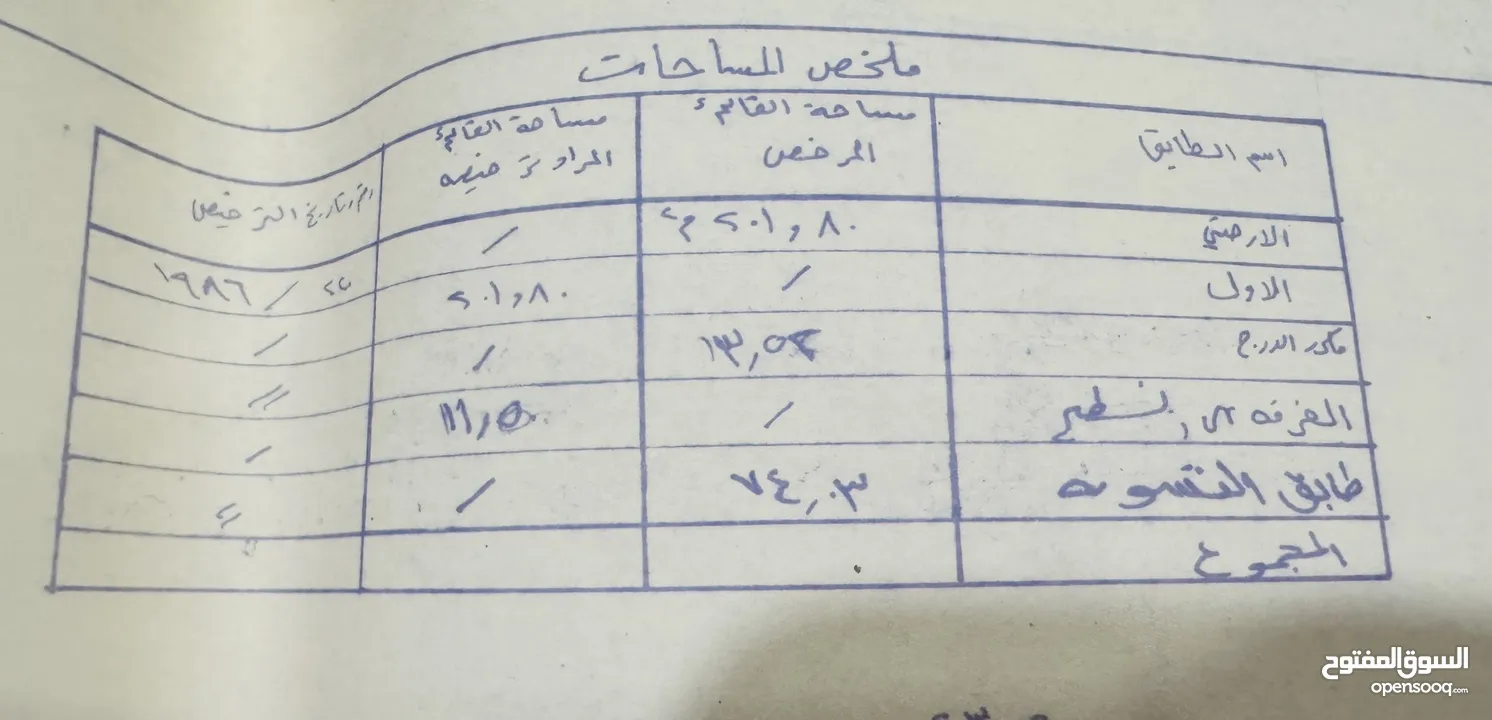 ملخص المساحات
اسم الطابق
مساحة القائم المرخص
مساحة القائم المراد ترخيصه
رقم وتاريخ الترخيص
الارضي ٢٠١,٨٠ م٢ /
الاول / ٢٠١,٨٠ ٢٢ / ١٩٨٦
مكرر الدرج / /
الغرفة / ١١,٥٠ //
طابق التسويه ٧٤,٠٣ / /
المجموع
السوق المفتوح
opensooq.com